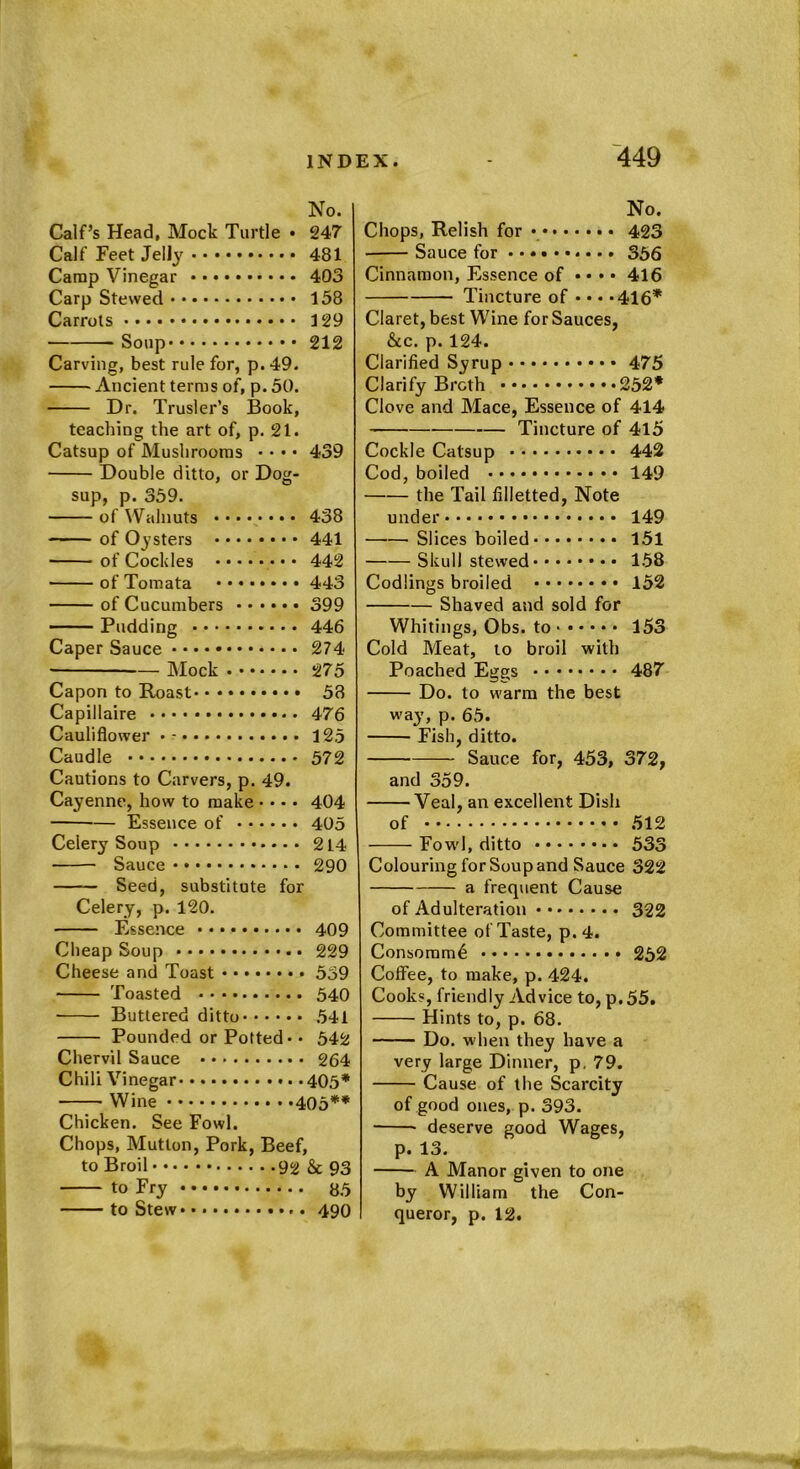 INDEX. - 449
No.
Calf's Head, Mock Turtle • 247
Calf Feet Jelly •••••••••• 481
Camp Vinegar •••••••••• 403
Carp Stewed •••••••••••• 158
Carrots •••••••••••••••• 129
—— Soup •••••••••••• 212
Carving, best rule for, p. 49.
—— Ancient terms of, p. 50.
—— Dr. Trusler's Book,
teaching the art of, p. 21.
Catsup of Mushrooms •••• 439
—— Double ditto, or Dog-
sup, p. 359.
—— of Walnuts •••••••• 438
—— of Oysters •••••••• 441
—— of Cockles •••••••• 442
—— of Tomata •••••••• 443
—— of Cucumbers •••••• 399
—— Pudding •••••••••• 446
Caper Sauce •••••••••••• 274
—— Mock ••••••• 275
Capon to Roast •••••••••• 58
Capillaire •••••••••••••• 476
Cauliflower •-•••••••••••• 125
Caudle •••••••••••••••• 572
Cautions to Carvers, p. 49.
Cayenne, how to make •••• 404
—— Essence of •••••• 405
Celery Soup •••••••••••• 214
—— Sauce •••••••••••• 290
—— Seed, substitute for
Celery, p. 120.
—— Essence •••••••••• 409
Cheap Soup •••••••••••• 229
Cheese and Toast •••••••• 539
—— Toasted •••••••••• 540
—— Buttered ditto •••••• 541
—— Pounded or Potted •• 542
Chervil Sauce •••••••••• 264
Chili Vinegar ••••••••••••405*
—— Wine ••••••••••••405**
Chicken. See Fowl.
Chops, Mutton, Pork, Beef,
to Broil •••••••••••••92 & 93
—— to Fry •••••••••••• 85
—— to Stew •••••••••••• 490
No.
Chops, Relish for •••••••• 423
—— Sauce for •••••••••• 356
Cinnamon, Essence of •••• 416
—— Tincture of ••••416*
Claret, best Wine for Sauces,
&c. p. 124.
Clarified Syrup •••••••••• 475
Clarify Broth •••••••••••252*
Clove and Mace, Essence of 414
—— Tincture of 415
Cockle Catsup •••••••••• 442
Cod, boiled •••••••••••• 149
—— the Tail filletted, Note
under •••••••••••••••• 149
—— Slices boiled •••••••• 151
—— Skull stewed •••••••• 158
Codlings broiled •••••••• 152
—— Shaved and sold for
Whitings, Obs. to •••••• 153
Cold Meat, to broil with
Poached Eggs •••••••• 487
—— Do. to warm the best
way, p. 65.
—— Fish, ditto.
—— Sauce for, 453, 372,
and 359.
—— Veal, an excellent Dish
of •••••••••••••••••• 512
—— Fowl, ditto •••••••• 533
Colouring for Soup and Sauce 322
—— a frequent Cause
of Adulteration •••••••• 322
Committee of Taste, p. 4.
Consommé •••••••••••• 252
Coffee, to make, p. 424.
Cooks, friendly Advice to, p. 55.
—— Hints to, p. 68.
—— Do. when they have a
very large Dinner, p. 79.
—— Cause of the Scarcity
of good ones, p. 393.
—— deserve good Wages,
p. 13.
—— A Manor given to one
by William the Con-
queror, p. 12.